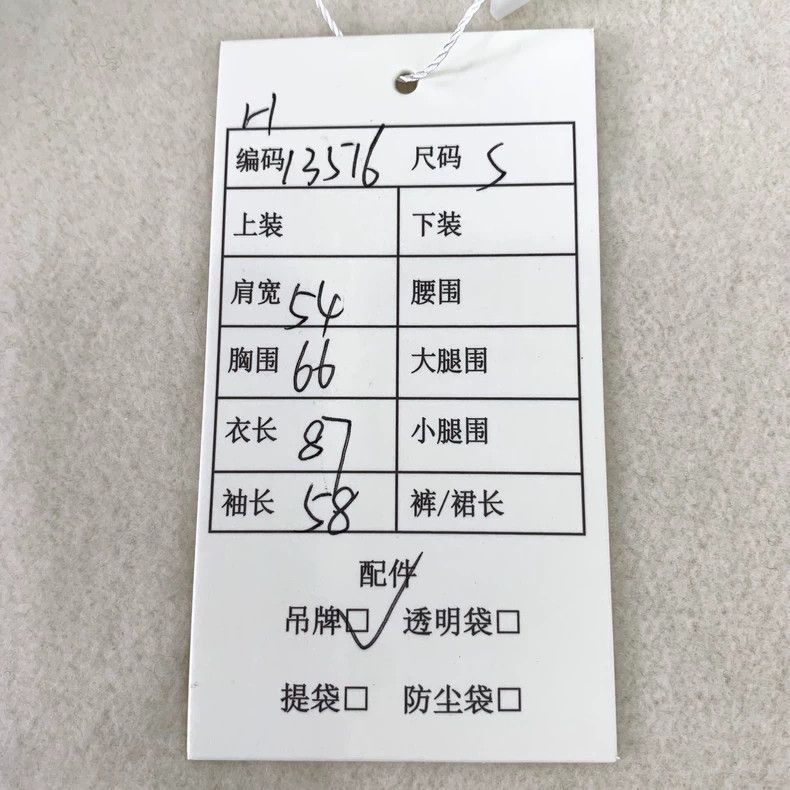 H
编码 13576 尺码 S
上装 下装
肩宽 54 腰围
胸围 66 大腿围
衣长 87 小腿围
袖长 58 裤/裙长
配件
吊牌☑ 透明袋□
提袋□ 防尘袋□